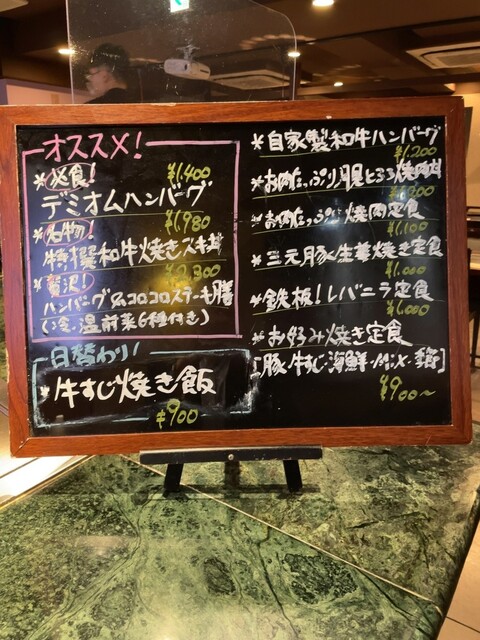 オススメ!
*必食! ¥1,400
デミオムハンバーグ
*名物! ¥1,980
特撰和牛焼きスキ丼
*贅沢! ¥2,300
ハンバーグ&コロコロステーキ膳
(冷、温前菜6種付き)
日替わり
*牛すじ焼き飯
¥900
*自家製和牛ハンバーグ
¥1,200
*お肉たっぷり月見とろろ焼肉丼
¥1,200
*お肉たっぷり焼肉定食
¥1,100
*三元豚生姜焼き定食
¥1,000
*鉄板!レバニラ定食
¥1,000
*お好み焼き定食
[豚・牛すじ・海鮮・Mix・
¥900~